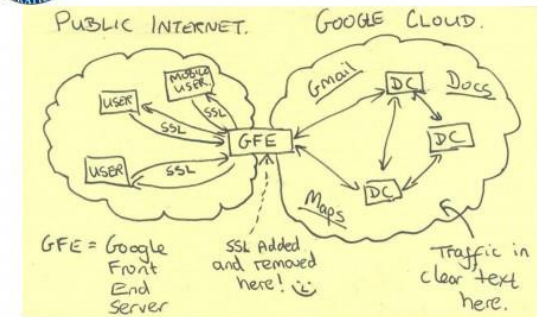 PUBLIC INTERNET.
GOOGLE CLOUD.
MOBILE
USER
USER
SSL
SSL
USER
SSL
GFE
Gmail
DC
Docs
DC
DC
Maps
GFE = Google
Front
End
Server
SSL Added
and removed
here!
Traffic in
clear text
here.